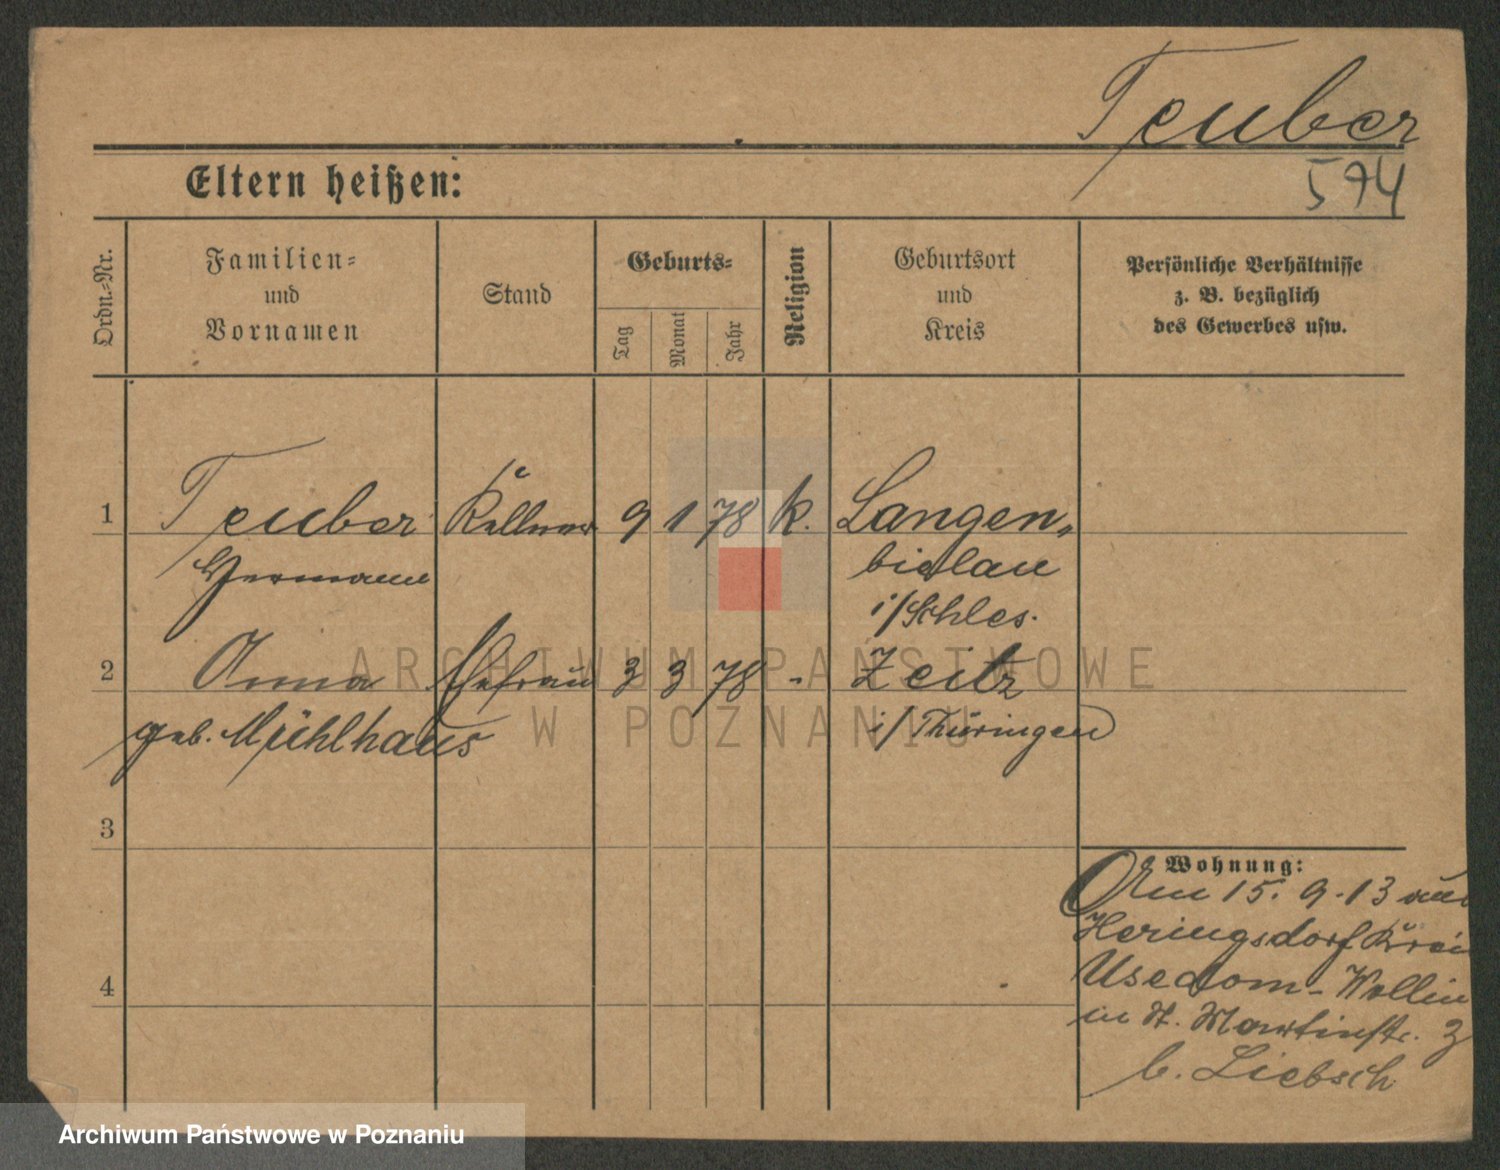 Teuber
594
Eltern heißen:
Ordn.-Nr.
Familien-
und
Vornamen
Stand
Geburts-
Tag
Monat
Jahr
Religion
Geburtsort
und
Kreis
Persönliche Verhältnisse
z. B. bezüglich
des Gewerbes usw.
1 Teuber Kellner 9 1 78 k. Langen-
Hermann bielau
i/Schles.
2 Anna Ehefrau 3 3 78 - Zeitz
geb. Mühlhaus i/Thüringen
3
4
Wohnung:
Am 15. 9. 13 aus
Heringsdorf Kreis
Usedom-Wollin
in St. Martinstr. 3
b. Liebsch
ARCHIWUM PAŃSTWOWE
W POZNANIU
Archiwum Państwowe w Poznaniu